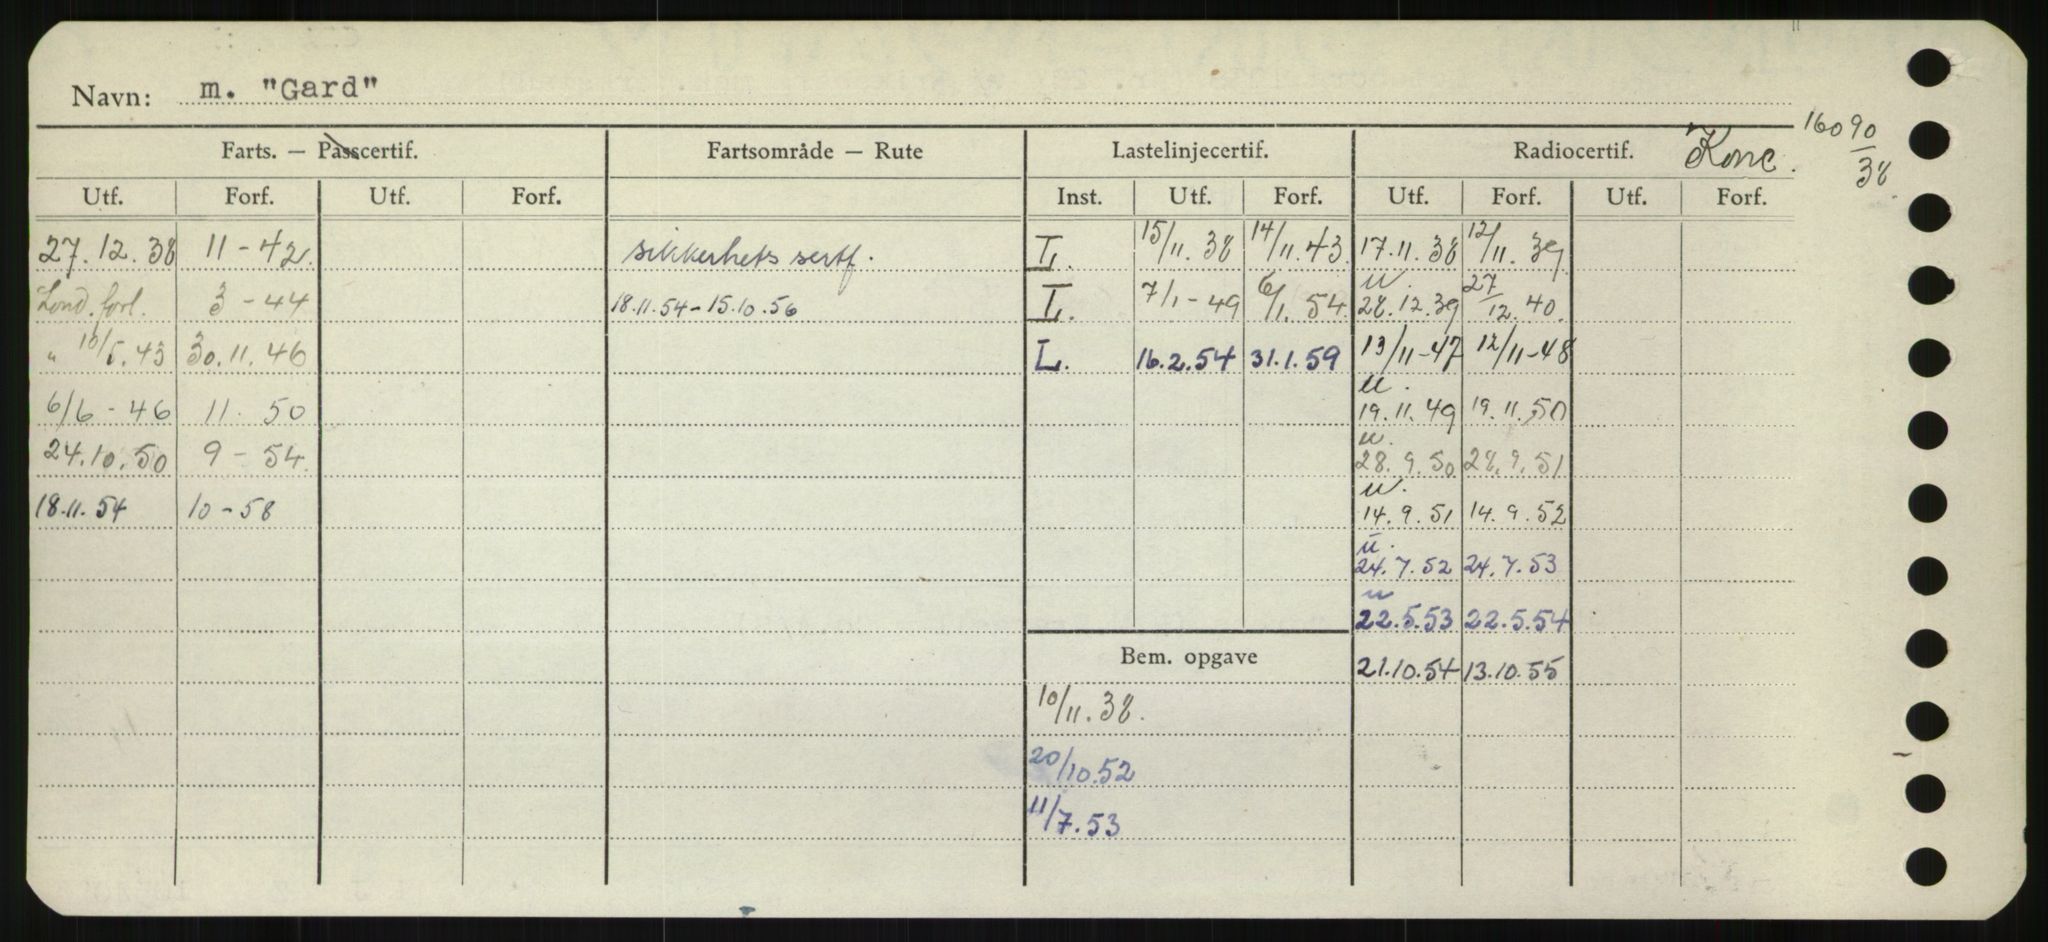 Navn: m. "Gard"
Farts. — Passcertif. Fartsområde — Rute Lastelinjecertif. Radiocertif. Konc. 16090/38
Utf. Forf. Utf. Forf. Inst. Utf. Forf. Utf. Forf. Utf. Forf.
27.12.38 11-42. sikkerhets sertf. L. 15/11.38 14/11.43 17.11.38 12/11.39
Lond. forl. 3-44 18.11.54-15.10.56 L. 7/1-49 6/1.54 u. 28.12.39 27/12.40.
" 10/5.43 30.11.46 L. 16.2.54 31.1.59 13/11-47 12/11-48
6/6-46 11. 50 u. 19.11.49 19.11.50
24.10.50 9-54. u. 28.9.50 28.9.51
18.11.54 10-58 u. 14.9.51 14.9.52
u. 24.7.52 24.7.53
u 22.5.53 22.5.54
Bem. opgave 21.10.54 13.10.55
10/11.38.
20/10.52
11/7.53